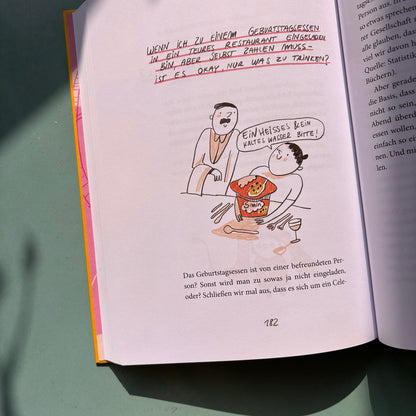 WENN ICH ZU EINEM GEBURTSTAGSESSEN
IN EIN TEURES RESTAURANT EINGELADEN
BIN, ABER SELBST ZAHLEN MUSS-
IST ES OKAY, NUR WAS ZU TRINKEN?
EIN HEISSES & EIN
KALTES WASSER BITTE!
5 min
Das Geburtstagsessen ist von einer befreundeten Per-
son? Sonst wird man zu sowas ja nicht eingeladen,
oder? Schließen wir mal aus, dass es sich um ein Cele-
182
Person aus.
so etwas sprechen
er Gesellschaft
alle glauben, das
Quelle: Statistik
Büchern).
Aber gerade
die Basis, dass
nicht so sein
Abend über
essen wollen
einfach so ei
Und mi
len.